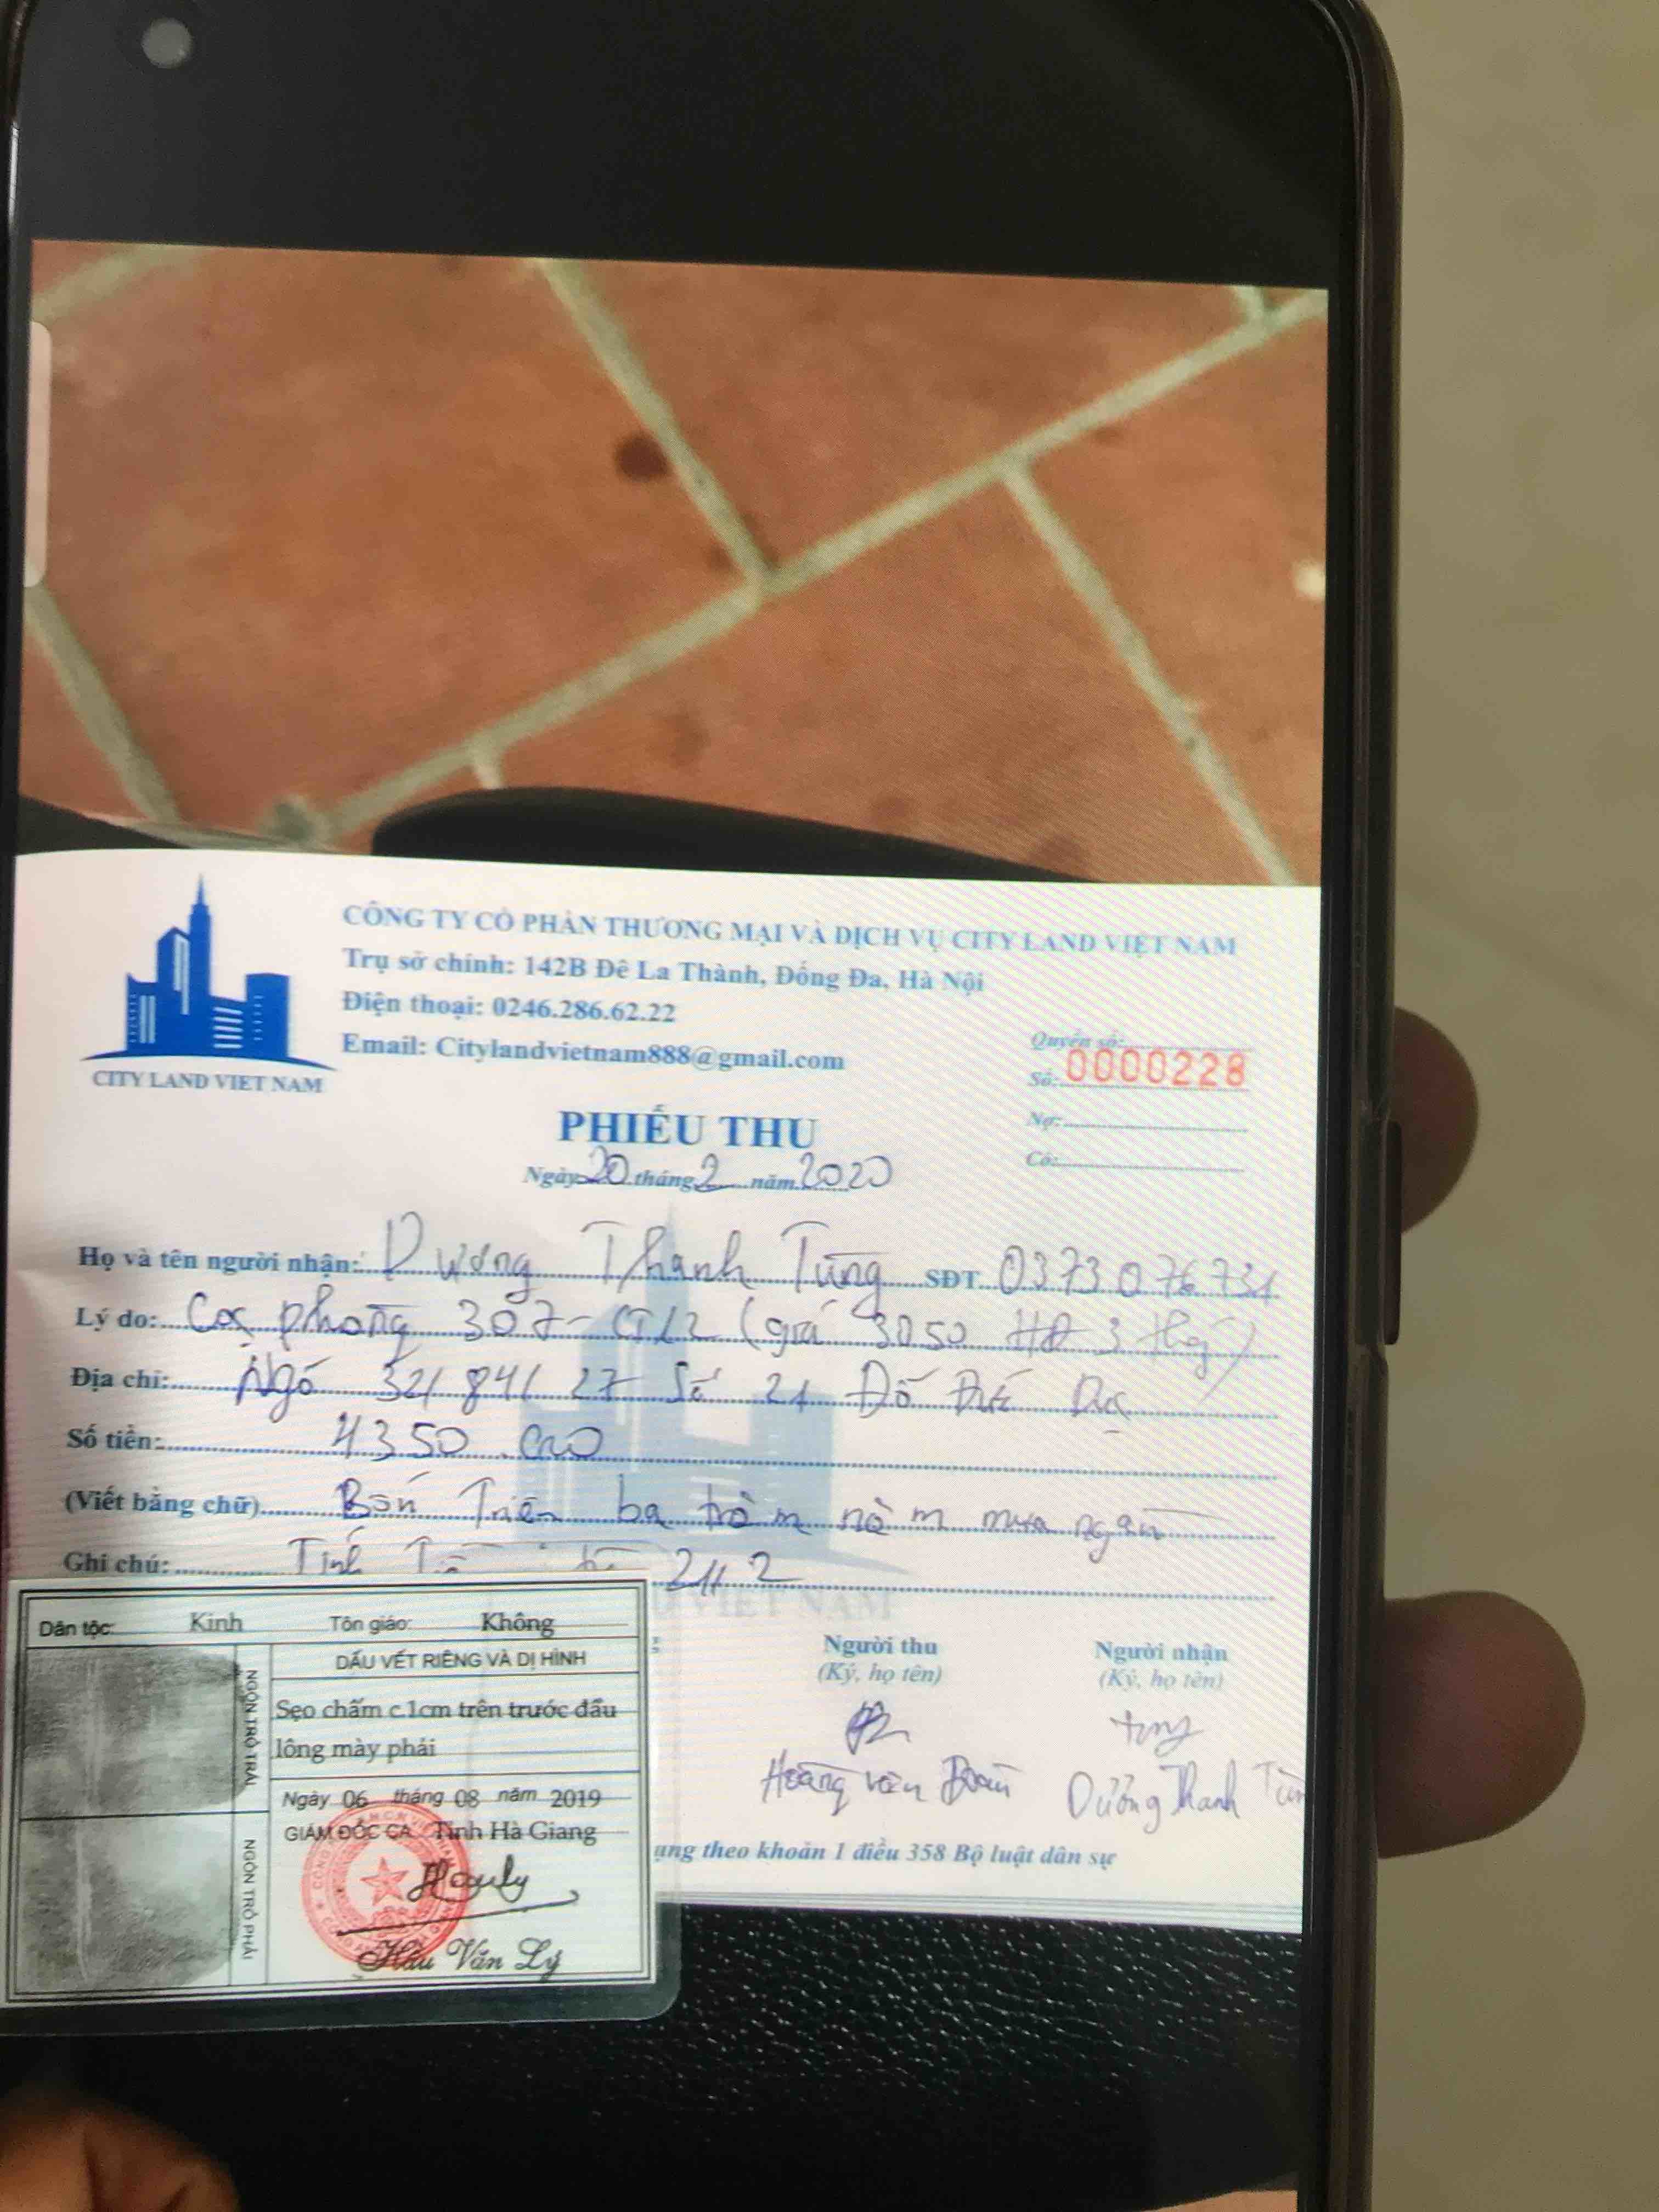 CÔNG TY CỔ PHẦN THƯƠNG MẠI VÀ DỊCH VỤ CITY LAND VIỆT NAM
Trụ sở chính: 142B Đê La Thành, Đống Đa, Hà Nội
Điện thoại: 0246.286.62.22
Email: Citylandvietnam888@gmail.com
CITY LAND VIET NAM
Quyển số:
Số: 0000228
Nợ:
Có:
PHIẾU THU
Ngày 20 tháng 2 năm 2020
Họ và tên người nhận: Dương Thanh Tùng SĐT 0373076731
Lý do: Cọc phòng 307- (giá 3050 HĐ 3 thg)
Địa chỉ: Ngõ 321 841 27 Số 21 Đỗ Đức Dục
Số tiền: 4350.000
(Viết bằng chữ) Bốn Triệu ba trăm năm mươi ngàn
Ghi chú: Tính
VIET NAM
Người thu Người nhận
(Ký, họ tên) (Ký, họ tên)
tung
Hoàng Văn Dương Thanh
ụng theo khoản 1 điều 358 Bộ luật dân sự
Dân tộc: Kinh Tôn giáo: Không
DẤU VẾT RIÊNG VÀ DỊ HÌNH
Sẹo chấm c.1cm trên trước đầu
lông mày phải
Ngày 06 tháng 08 năm 2019
GIÁM ĐỐC CA Tỉnh Hà Giang
Hầu Văn Lý
NGÓN TRỎ TRÁI
NGÓN TRỎ PHẢI